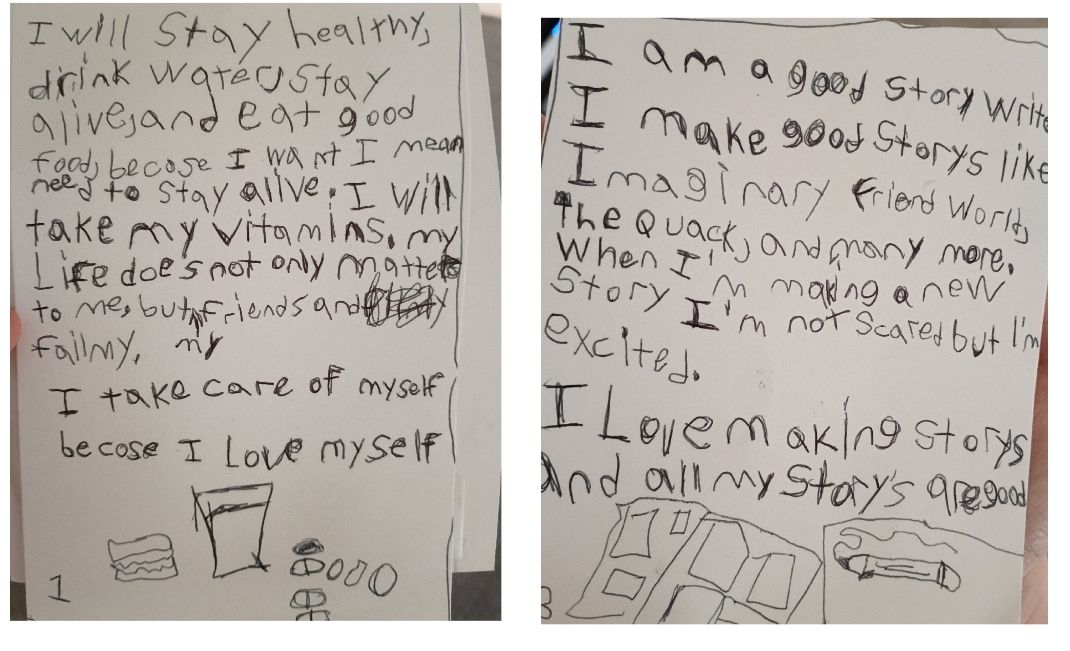 I will Stay healthy,
drink water, Stay
alive, and eat good
food, becose I want I mean
need to stay alive. I will
take my vitamins. my
Life does not only matters
to me, but friends and
failmy. my
I take care of myself
becose I Love myself
1
I am a good Story write
I make good Storys like
Imaginary friend World,
The Quack, and many more.
When I'm making a new
Story I'm not Scared but I'm
excited.
I Love making storys
And all my Story's are good
3